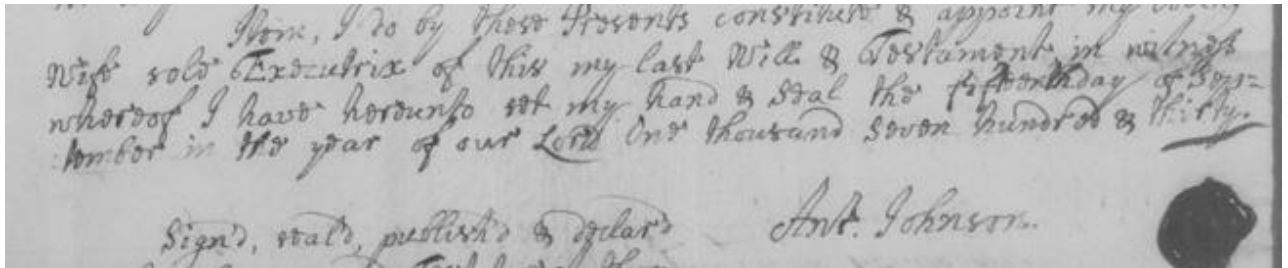 Item, I do by these Presents constitute & appoint my loving
Wife sole Executrix of this my last Will & Testament in witness
whereof I have hereunto set my hand & Seal the fifteenth day of Sep=
tember in the year of our Lord One thousand Seven hundred & thirty.
Sign'd, seal'd, publish'd & declar'd Ant. Johnson.